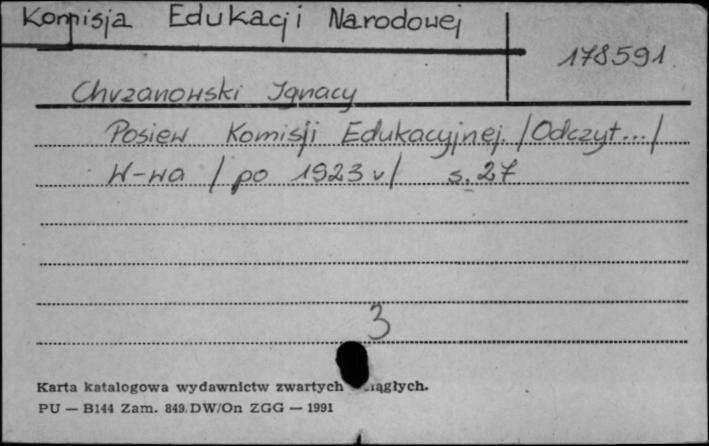 Komisja Edukacji Narodowej
178591
Chrzanowski Ignacy
Posiew Komisji Edukacyjnej /Odczyt.../
W-wa /po 1923 r/ s. 27
3
Karta katalogowa wydawnictw zwartych
PU — B144 Zam. 849/DW/On ZGG — 1991